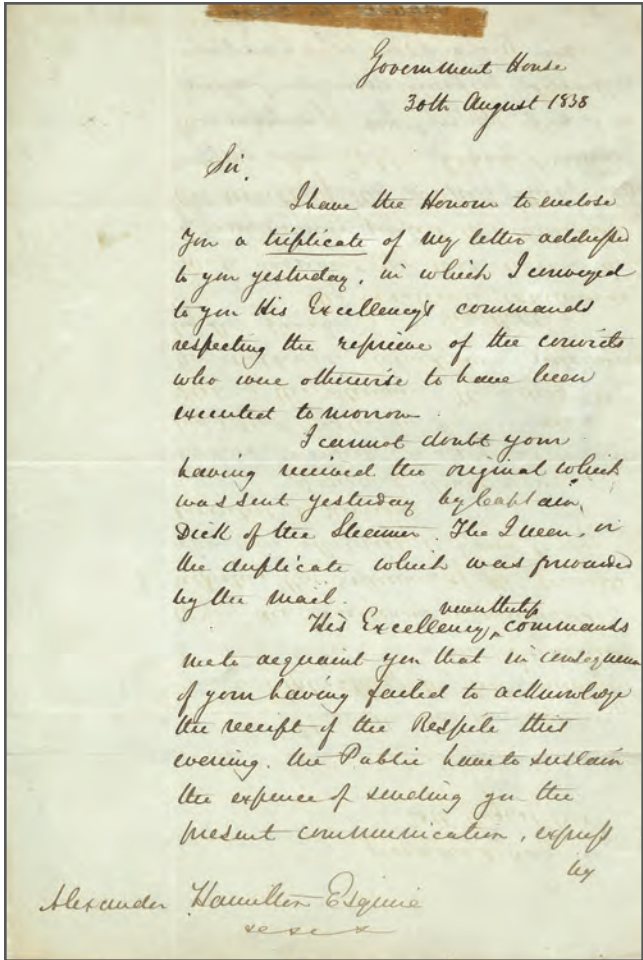 Government House
30th August 1838
Sir,
I have the Honour to enclose
you a triplicate of my letter addressed
to you yesterday, in which I conveyed
to you His Excellency's commands
respecting the reprieve of the convicts
who were otherwise to have been
executed tomorrow.
I cannot doubt your
having received the original which
was sent yesterday by Captain
Dick of the Steamer, The Queen, or
the duplicate which was forwarded
by the Mail.
His Excellency nevertheless commands
me to acquaint you that in consequence
of your having failed to acknowledge
the receipt of the Respite this
evening, the Public have to sustain
the expence of sending you the
present communication, express
by
Alexander Hamilton Esquire